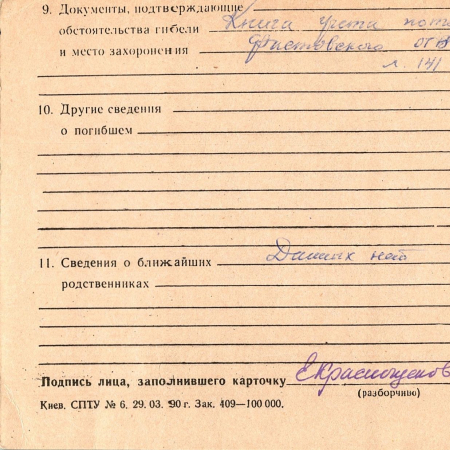 9. Документы, подтверждающие
обстоятельства гибели Книга учета
и место захоронения
л. 141
10. Другие сведения
о погибшем
11. Сведения о ближайших Данных нет
родственниках
Подпись лица, заполнившего карточку ЕКраснощеков
(разборчиво)
Киев. СПТУ № 6, 29. 03. 90 г. Зак. 409—100 000.